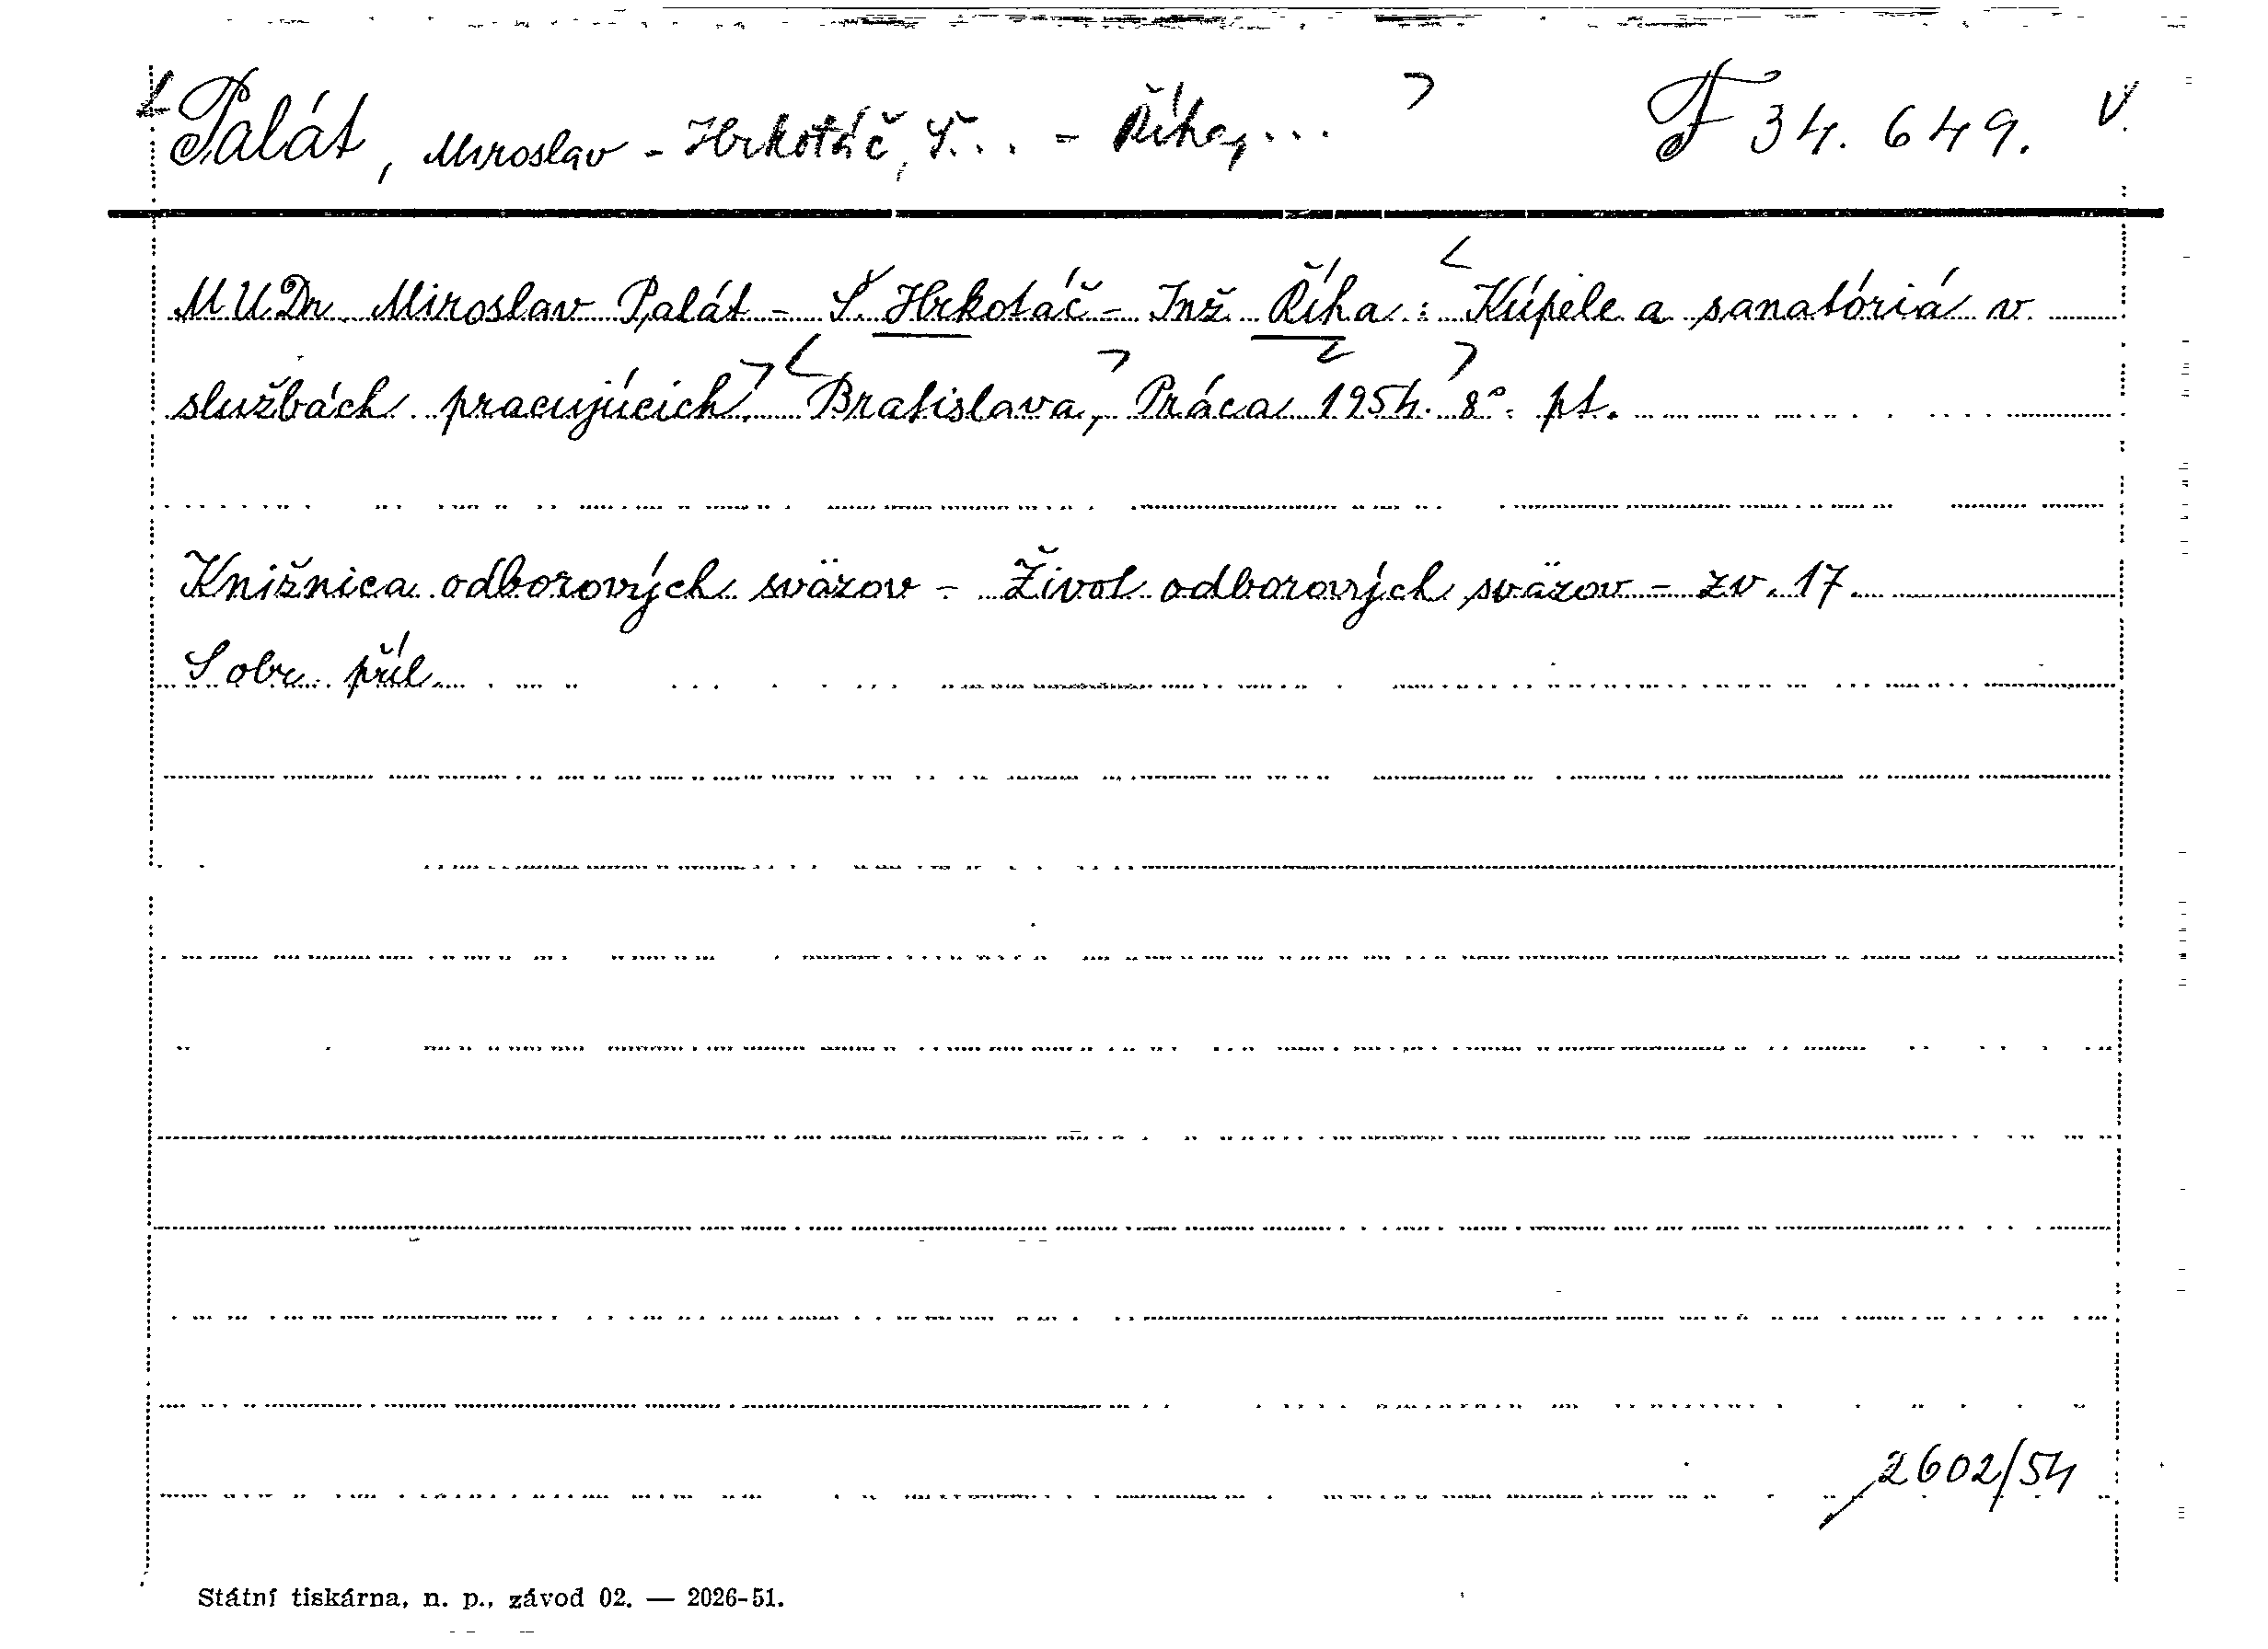 Palát, Miroslav - Hrkotáč, Š... - Říha, ... F 34.649. V.
MUDr. Miroslav Palát - Š. Hrkotáč - Inž. Říha: Kúpele a sanatóriá v
službách pracujúcich. Bratislava, Práca 1954. 8°. pt.
Knižnica odborových sväzov - Život odborových sväzov - zv. 17.
S obr. příl.
2602/54
Státní tiskárna, n. p., závod 02. — 2026-51.